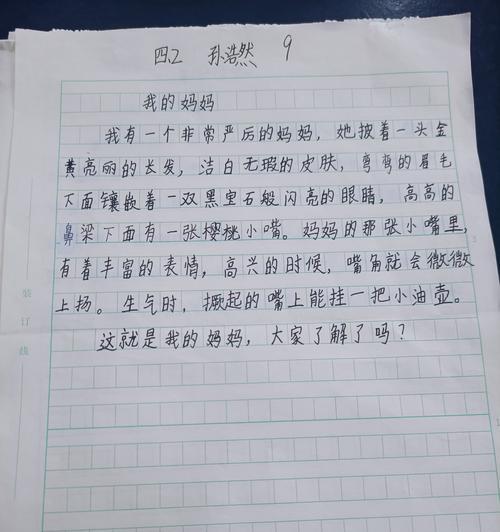 四.2 孙浩然 9
我的妈妈
我有一个非常严厉的妈妈，她披着一头金
黄亮丽的长发，洁白无瑕的皮肤，弯弯的眉毛
下面镶嵌着一双黑宝石般闪亮的眼睛，高高的
鼻梁下面有一张樱桃小嘴。妈妈的那张小嘴里，
有着丰富的表情，高兴的时候，嘴角就会微微
上扬。生气时，撅起的嘴上能挂一把小油壶。
这就是我的妈妈，大家了解了吗？
装订线